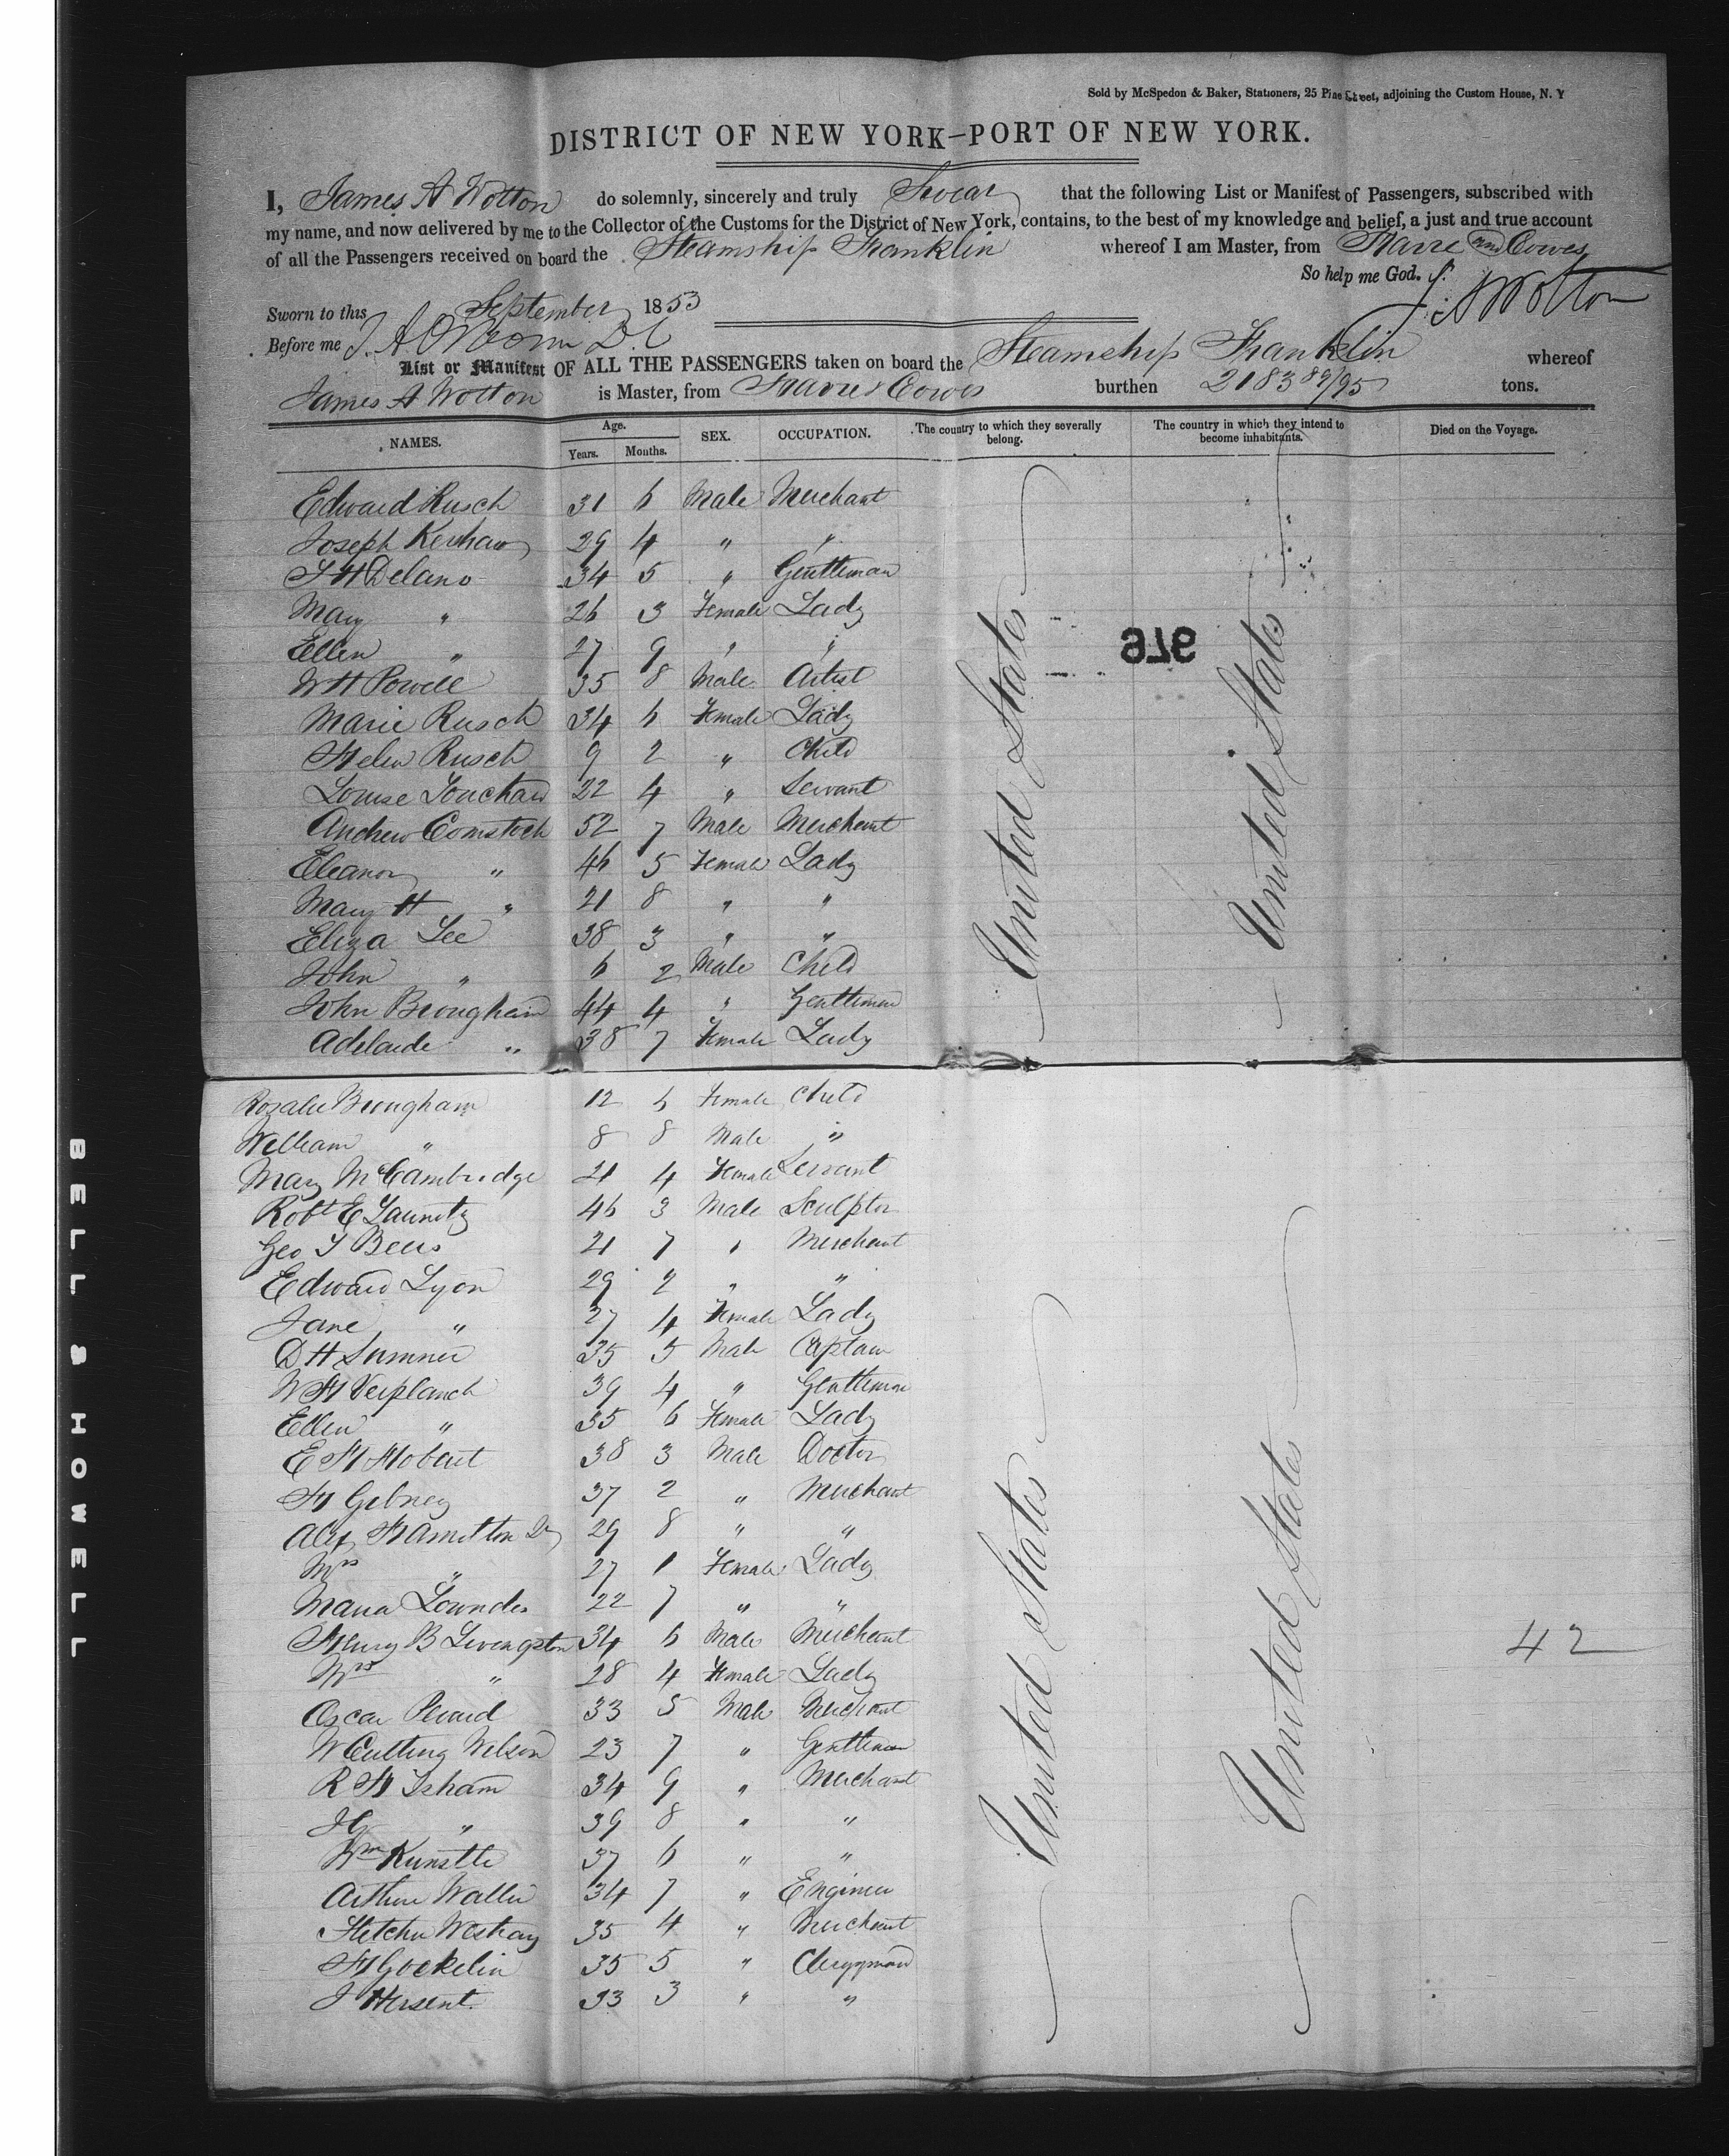 Sold by McSpedon & Baker, Stationers, 25 Pine Street, adjoining the Custom House, N. Y
DISTRICT OF NEW YORK-PORT OF NEW YORK.
I, James A Wotton do solemnly, sincerely and truly Swear that the following List or Manifest of Passengers, subscribed with
my name, and now delivered by me to the Collector of the Customs for the District of New York, contains, to the best of my knowledge and belief, a just and true account
of all the Passengers received on board the Steamship Franklin whereof I am Master, from Havre and Cowes
So help me God.
J. A Wotton
Sworn to this September 1853
Before me
List or Manifest OF ALL THE PASSENGERS taken on board the Steamship Franklin whereof
James A Wotton is Master, from Havre & Cowes burthen 2183 89/95 tons.
NAMES. Age. Years. Months. SEX. OCCUPATION. The country to which they severally belong. The country in which they intend to become inhabitants. Died on the Voyage.
Edward Rusch 31 6 Male Merchant
Joseph Kershaw 29 4 " "
F H Delano 34 5 " Gentleman
Mary " 26 3 Female Lady
Ellen " 27 9 " "
W H Powell 35 8 Male Artist
Marie Rusch 34 6 Female Lady
Helen Rusch 9 2 " Child
Louise Touchard 22 4 " Servant
Andrew Comstock 52 7 Male Merchant
Eleanor " 46 5 Female Lady
Mary H " 21 8 " "
Eliza Lee 38 3 " "
John " 6 2 Male Child
John Brougham 44 4 " Gentleman
Adelaide " 38 7 Female Lady
United States
United States
976
Rozalie Brougham 12 6 Female Child
William " 8 8 Male "
Mary McCambridge 21 4 Female Servant
Robt E Launitz 46 3 Male Sculptor
Geo T Beers 21 7 " Merchant
Edward Lyon 29 2 " "
Jane " 27 4 Female Lady
D H Sumner 35 5 Male Captain
W H Verplanck 39 4 " Gentleman
Ellen " 35 6 Female Lady
E H Hobart 38 3 Male Doctor
H Gebney 37 2 " Merchant
Alex Hamilton Jr 29 8 " "
Mrs " 27 1 Female Lady
Maria Lowndes 22 7 " "
Henry B Livingston 34 6 Male Merchant
Mrs " 28 4 Female Lady
Oscar 33 5 Male Merchant
W Cutting Wilson 23 7 " Gentleman
R H Isham 34 9 " Merchant
J G " 39 8 " "
Wm Kunstle 37 6 " "
Arthur Waller 34 7 " Engineer
Fletcher Westray 35 4 " Merchant
H Gockelin 35 5 " Clergyman
J Hersent 33 3 " "
United States
United States
42
BELL & HOWELL